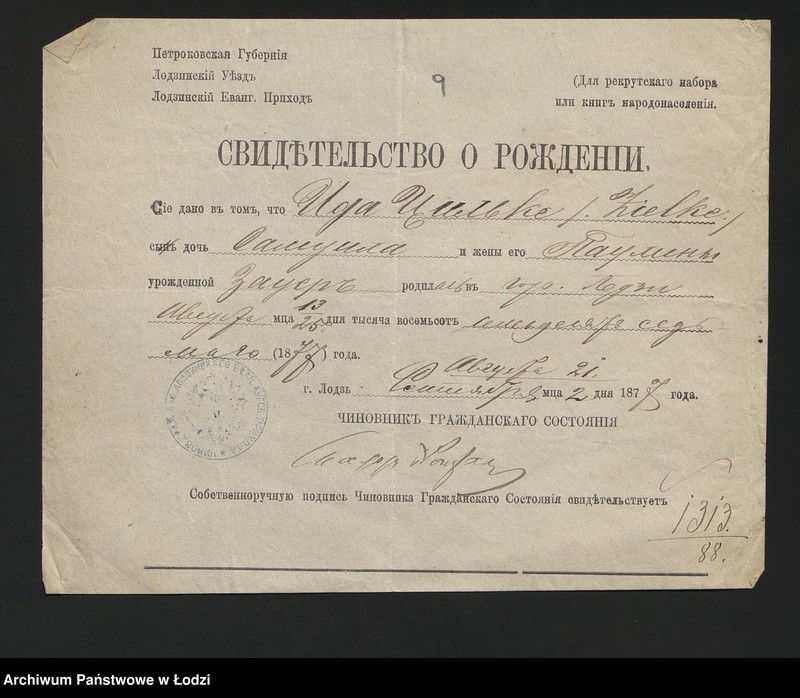 Петроковская Губернія
Лодзинскій Уѣздъ
Лодзинскій Еванг. Приходъ
9
(Для рекрутскаго набора
или книгъ народонаселенія.
СВИДѢТЕЛЬСТВО О РОЖДЕНІИ.
Сіе дано въ томъ, что Ида Цильке /: Zielke :/
сынъ дочь Самуила и жены его Паулины
урожденной Зауеръ родилась въ гор. Лодзи
Августа мца 13/25 дня тысяча восемьсотъ семьдесятъ седь-
маго (1877) года.
Августа 21.
г. Лодзь Сентября мца 2 дня 1877 года.
ЧИНОВНИКЪ ГРАЖДАНСКАГО СОСТОЯНІЯ
Пасторъ
Собственноручную подпись Чиновника Гражданскаго Состоянія свидѣтельствуетъ
1313.
88.
Archiwum Państwowe w Łodzi